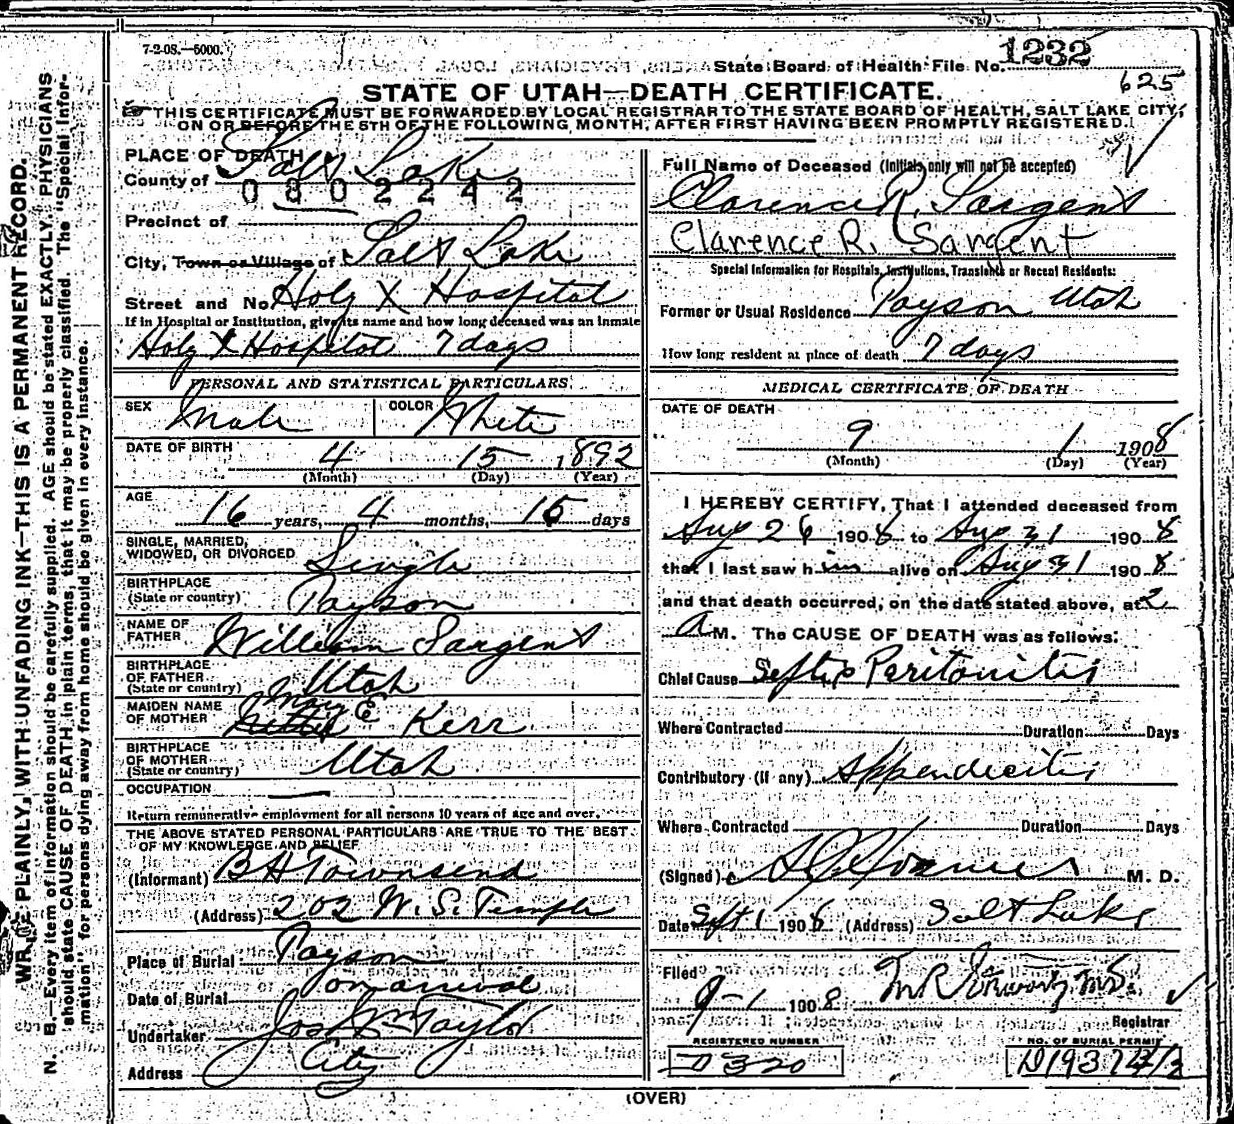 7-2-08.—5000.
State Board of Health File No. 1232
625
STATE OF UTAH—DEATH CERTIFICATE.
THIS CERTIFICATE MUST BE FORWARDED BY LOCAL REGISTRAR TO THE STATE BOARD OF HEALTH, SALT LAKE CITY,
ON OR BEFORE THE 5TH OF THE FOLLOWING MONTH, AFTER FIRST HAVING BEEN PROMPTLY REGISTERED.
WRITE PLAINLY, WITH UNFADING INK—THIS IS A PERMANENT RECORD.
N. B.—Every item of information should be carefully supplied. AGE should be stated EXACTLY. PHYSICIANS
should state CAUSE OF DEATH in plain terms, that it may be properly classified. The "Special Infor-
mation" for persons dying away from home should be given in every instance.
PLACE OF DEATH
County of Salt Lake
0802242
Precinct of
City, Town or Village of Salt Lake
Street and No. Holy X Hospital
If in Hospital or Institution, give its name and how long deceased was an inmate
Holy X Hospital 7 days
PERSONAL AND STATISTICAL PARTICULARS
SEX Male COLOR White
DATE OF BIRTH 4 15 1892
(Month) (Day) (Year)
AGE 16 years, 4 months, 15 days
SINGLE, MARRIED,
WIDOWED, OR DIVORCED Single
BIRTHPLACE
(State or country) Payson
NAME OF
FATHER William Sargent
BIRTHPLACE
OF FATHER
(State or country) Utah
MAIDEN NAME
OF MOTHER Mary E Kerr
BIRTHPLACE
OF MOTHER
(State or country) Utah
OCCUPATION —
Return remunerative employment for all persons 10 years of age and over.
THE ABOVE STATED PERSONAL PARTICULARS ARE TRUE TO THE BEST
OF MY KNOWLEDGE AND BELIEF
(Informant) B H Townsend
(Address) 202 W. S. Temple
Place of Burial Payson
Date of Burial on arrival
Undertaker Jos Wm Taylor
Address City
Full Name of Deceased (Initials only will not be accepted)
Clarence R. Sargent
Clarence R. Sargent
Special Information for Hospitals, Institutions, Transients or Recent Residents:
Former or Usual Residence Payson Utah
How long resident at place of death 7 days
MEDICAL CERTIFICATE OF DEATH
DATE OF DEATH
9 1 1908
(Month) (Day) (Year)
I HEREBY CERTIFY, That I attended deceased from
Aug 26 1908 to Aug 31 1908
that I last saw him alive on Aug 31 1908
and that death occurred, on the date stated above, at 2
A M. The CAUSE OF DEATH was as follows:
Chief Cause Septic Peritonitis
Where Contracted Duration Days
Contributory (if any) Appendicitis
Where Contracted Duration Days
(Signed) M. D.
Date Sept 1 1908 (Address) Salt Lake
Filed 9-1 1908
Registrar
REGISTERED NUMBER NO. OF BURIAL PERMIT
D 320
(OVER)